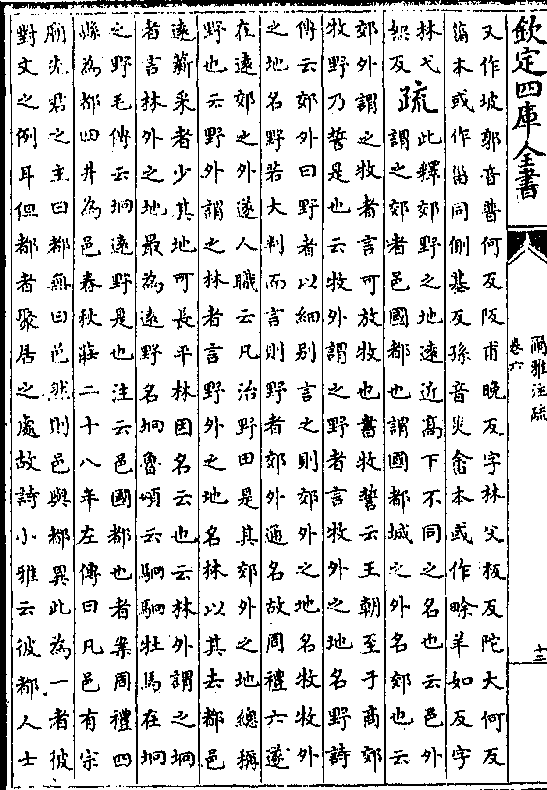 欽定四庫全書
爾雅注疏
卷六
十三
又作坡郭音普何反阪甫晚反字林父板反陀大何反
菑本或作甾同側基反孫音災畬本或作畭羊如反字
林弋
恕反
疏
此釋郊野之地遠近高下不同之名也云邑外
謂之郊者邑國都也謂國都城之外名郊也云
郊外謂之牧者言可放牧也書牧誓云王朝至于商郊
牧野乃誓是也云牧外謂之野者言牧外之地名野詩
傳云郊外曰野者以細别言之則郊外之地名牧牧外
之地名野若大判而言則野者郊外通名故周禮六遂
在遠郊之外遂人職云凡治野田是其郊外之地總稱
野也云野外謂之林者言野外之地名林以其去都邑
遠薪采者少其地可長平林因名云也云林外謂之坰
者言林外之地最為遠野名坰魯頌云駉駉牡馬在坰
之野毛傳云坰遠野是也注云邑國都也者案周禮四
縣為都四井為邑春秋莊二十八年左傳曰凡邑有宗
廟先君之主曰都無曰邑然則邑與都異此為一者彼
對文之例耳但都者聚居之處故詩小雅云彼都人士